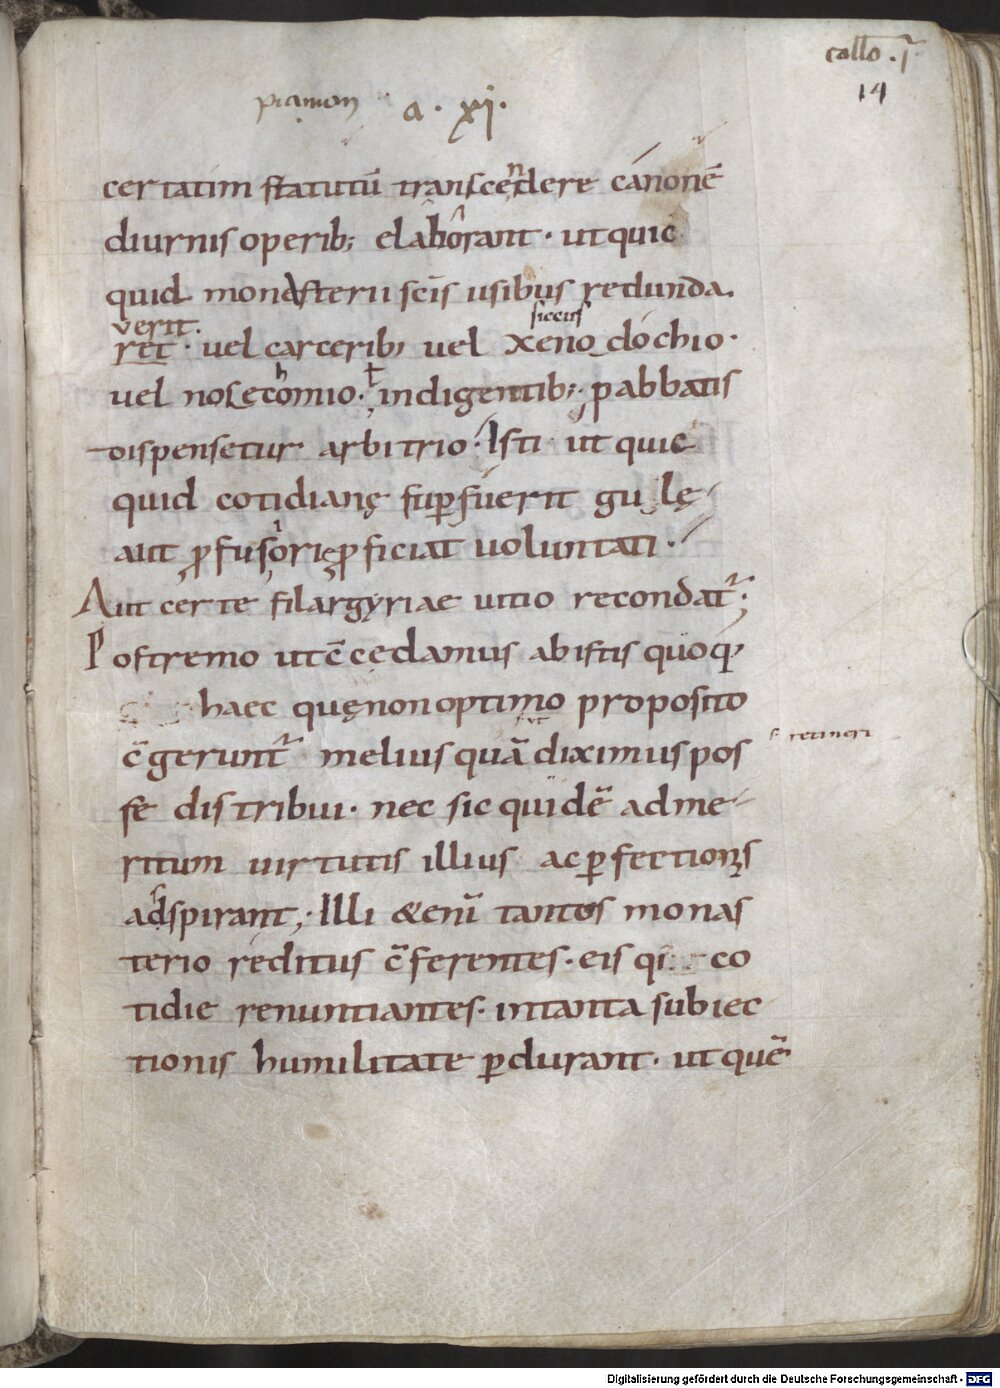 collo · i ·
14
piamon a · xi ·
certatim statutū transcendere canonē
diurnis operib; elaborant · ut quic
quid monasterii scīs usibus redunda
verit.
ret · vel carcerib; vel xeno dochio ·
siccus
vel nosecomio · indigentib; p abbatis
dispensetur arbitrio · Isti ut quic
quid cotidianę supfuerit gulę
aut pfusorię pficiat voluntati ·
Aut certe filargyriae vitio recondat ;
Postremo ut c̄cedamus ab istis quoq
haec quę non optimo proposito
c̄gerunt melius quā diximus pos
retineri
se distribui · nec sic quidē ad me
ritum virtutis illius ac pfectionis
adspirant ; Illi &enī tantos monas
terio reditus c̄ferentes · eis qi co
tidie renuntiantes · in tanta subiec
tionis humilitate pdurant · ut quē
Digitalisierung gefördert durch die Deutsche Forschungsgemeinschaft - DFG